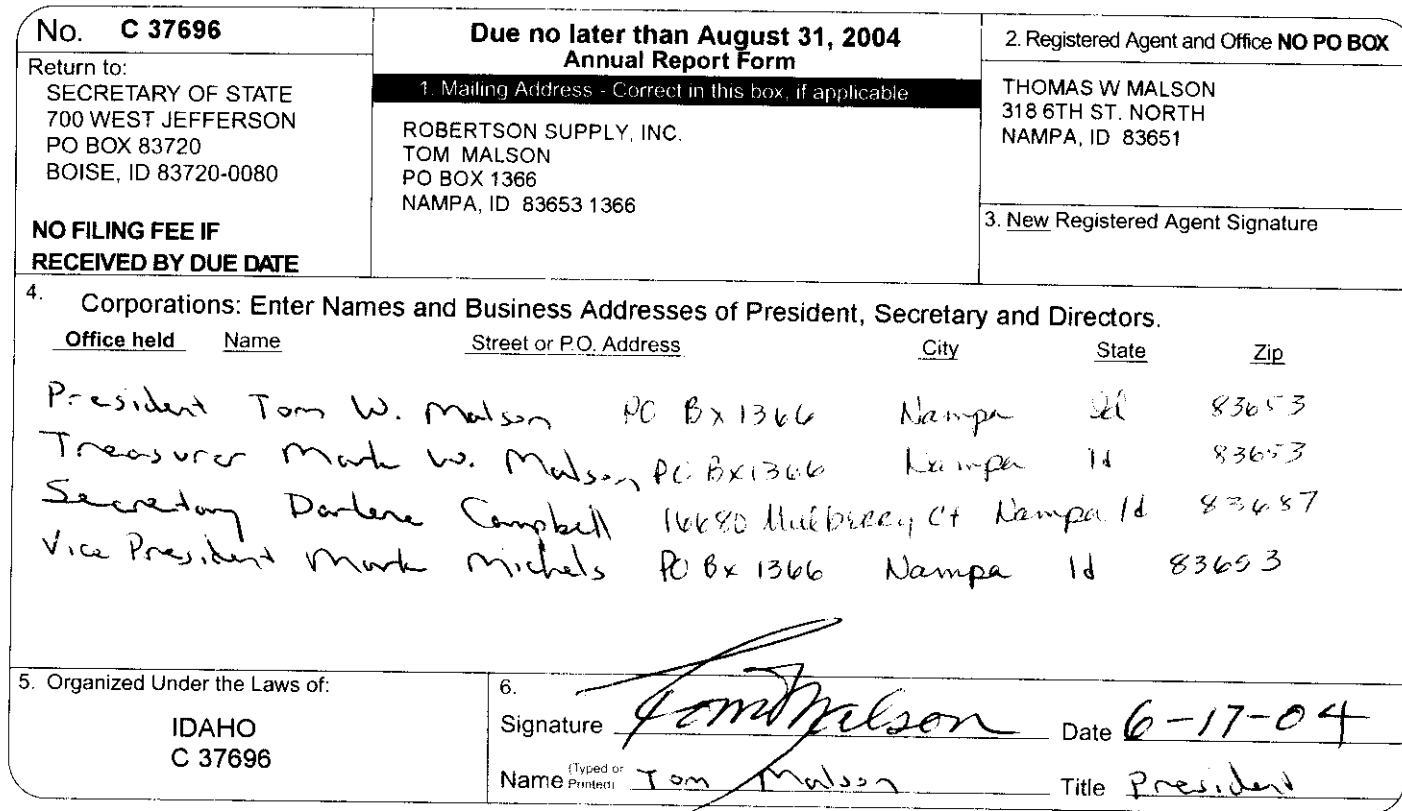 No. C 37696
Return to:
SECRETARY OF STATE
700 WEST JEFFERSON
PO BOX 83720
BOISE, ID 83720-0080
NO FILING FEE IF
RECEIVED BY DUE DATE
Due no later than August 31, 2004
Annual Report Form
1. Mailing Address - Correct in this box, if applicable
ROBERTSON SUPPLY, INC.
TOM MALSON
PO BOX 1366
NAMPA, ID 83653 1366
2. Registered Agent and Office NO PO BOX
THOMAS W MALSON
318 6TH ST. NORTH
NAMPA, ID 83651
3. New Registered Agent Signature
4. Corporations: Enter Names and Business Addresses of President, Secretary and Directors.
Office held Name Street or P.O. Address City State Zip
President Tom W. Malson PO Bx 1366 Nampa Id 83653
Treasurer Mark W. Malson PO Bx 1366 Nampa Id 83653
Secretary Darlene Campbell 16680 Mulberry Ct Nampa Id 83687
Vice President Mark Michels PO Bx 1366 Nampa Id 83653
5. Organized Under the Laws of:
IDAHO
C 37696
6.
Signature Tom Malson Date 6-17-04
Name (Typed or Printed) Tom Malson Title President